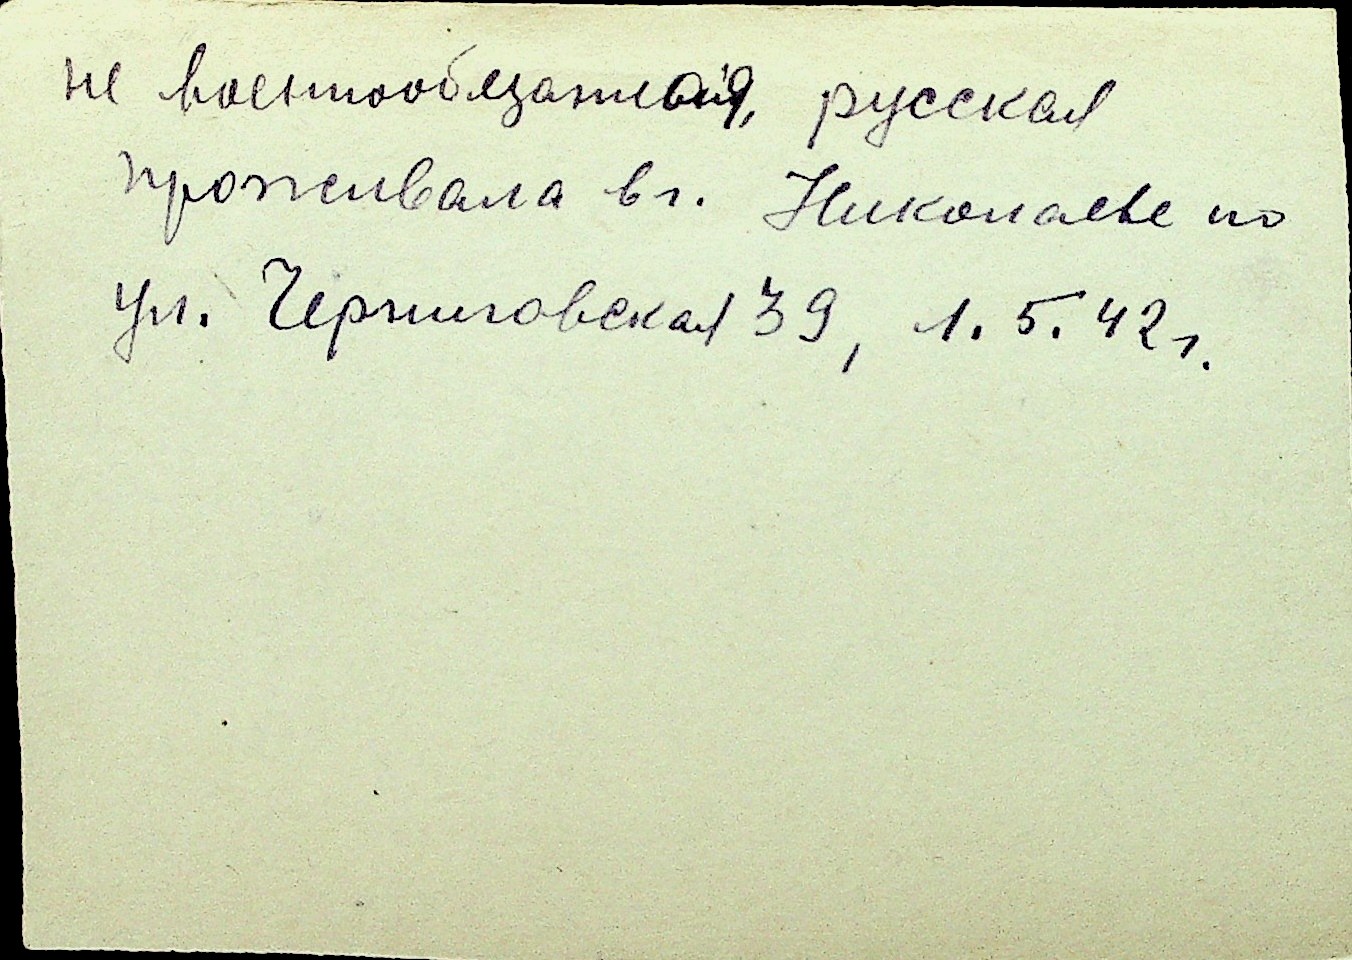 не военнообязанная, русская
проживала в г. Николаеве по
ул. Черниговская 39, 1.5.42 г.